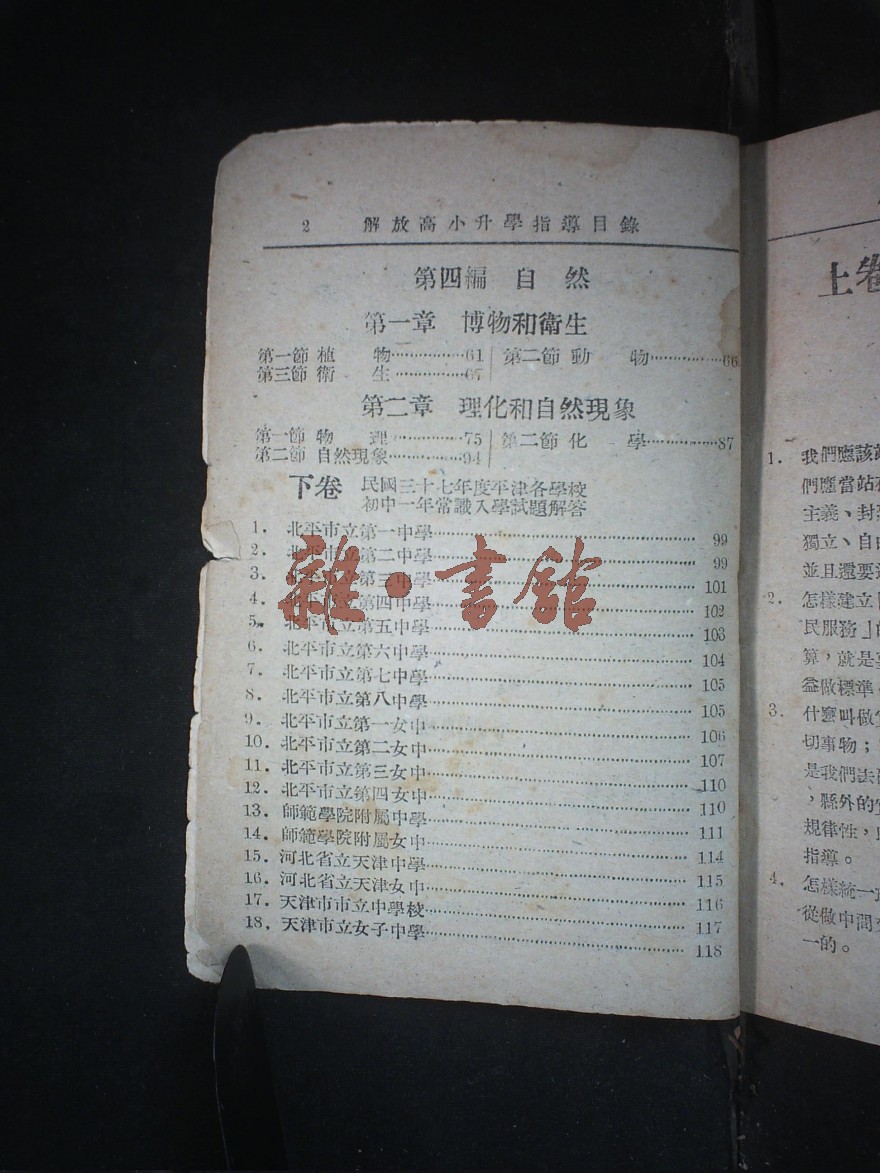 2 解放高小升學指導目錄
第四編 自然
第一章 博物和衛生
第一節 植 物……………61 第二節 動 物……………66
第三節 衛 生……………67
第二章 理化和自然現象
第一節 物 理……………75 第二節 化 學……………87
第二節 自然現象……………94
下卷 民國三十七年度平津各學校
初中一年常識入學試題解答
1. 北平市立第一中學…………………… 99
2. 北平市立第二中學…………………… 99
3. 北平市立第三中學…………………… 101
4. 北平市立第四中學…………………… 102
5. 北平市立第五中學…………………… 103
6. 北平市立第六中學…………………… 104
7. 北平市立第七中學…………………… 105
8. 北平市立第八中學…………………… 105
9. 北平市立第一女中…………………… 106
10. 北平市立第二女中…………………… 107
11. 北平市立第三女中…………………… 110
12. 北平市立第四女中…………………… 110
13. 師範學院附屬中學…………………… 111
14. 師範學院附屬女中…………………… 114
15. 河北省立天津中學…………………… 115
16. 河北省立天津女中…………………… 116
17. 天津市市立中學校…………………… 117
18. 天津市立女子中學…………………… 118
雜·書館
上卷
1. 我們應該
們應當站
主義、封
獨立、自由
並且還要
2. 怎樣建立
民服務」的
算，就是
益做標準
3. 什麼叫做
切事物；
是我們去
，縣外的
規律性，
指導。
4. 怎樣統一
從做中間
一的。